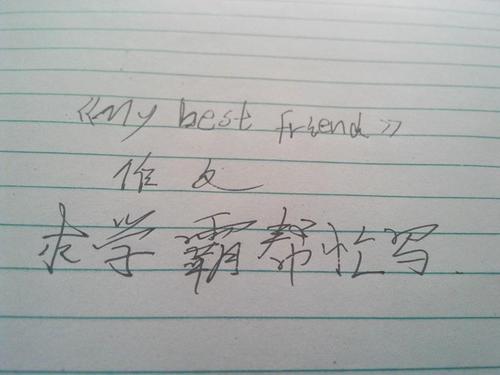 《My best friend》
作文
求学霸帮忙写.